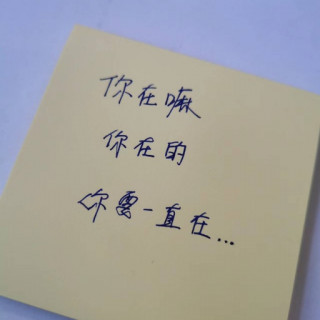 你在嘛
你在的
你要一直在...